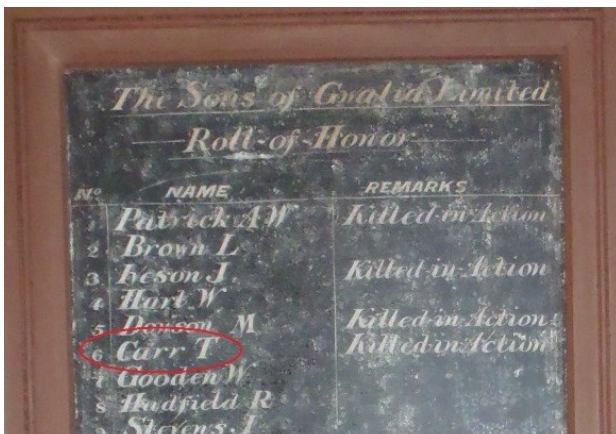 The Sons of Gwalia Limited
Roll-of-Honor
No NAME REMARKS
1 Patrick A W Killed-in-Action
2 Brown L
3 Leson J Killed-in-Action
4 Hart W
5 Dowson M Killed-in-Action
6 Carr T Killed-in-Action
7 Gooden W
8 Hadfield R
9 Stevens J